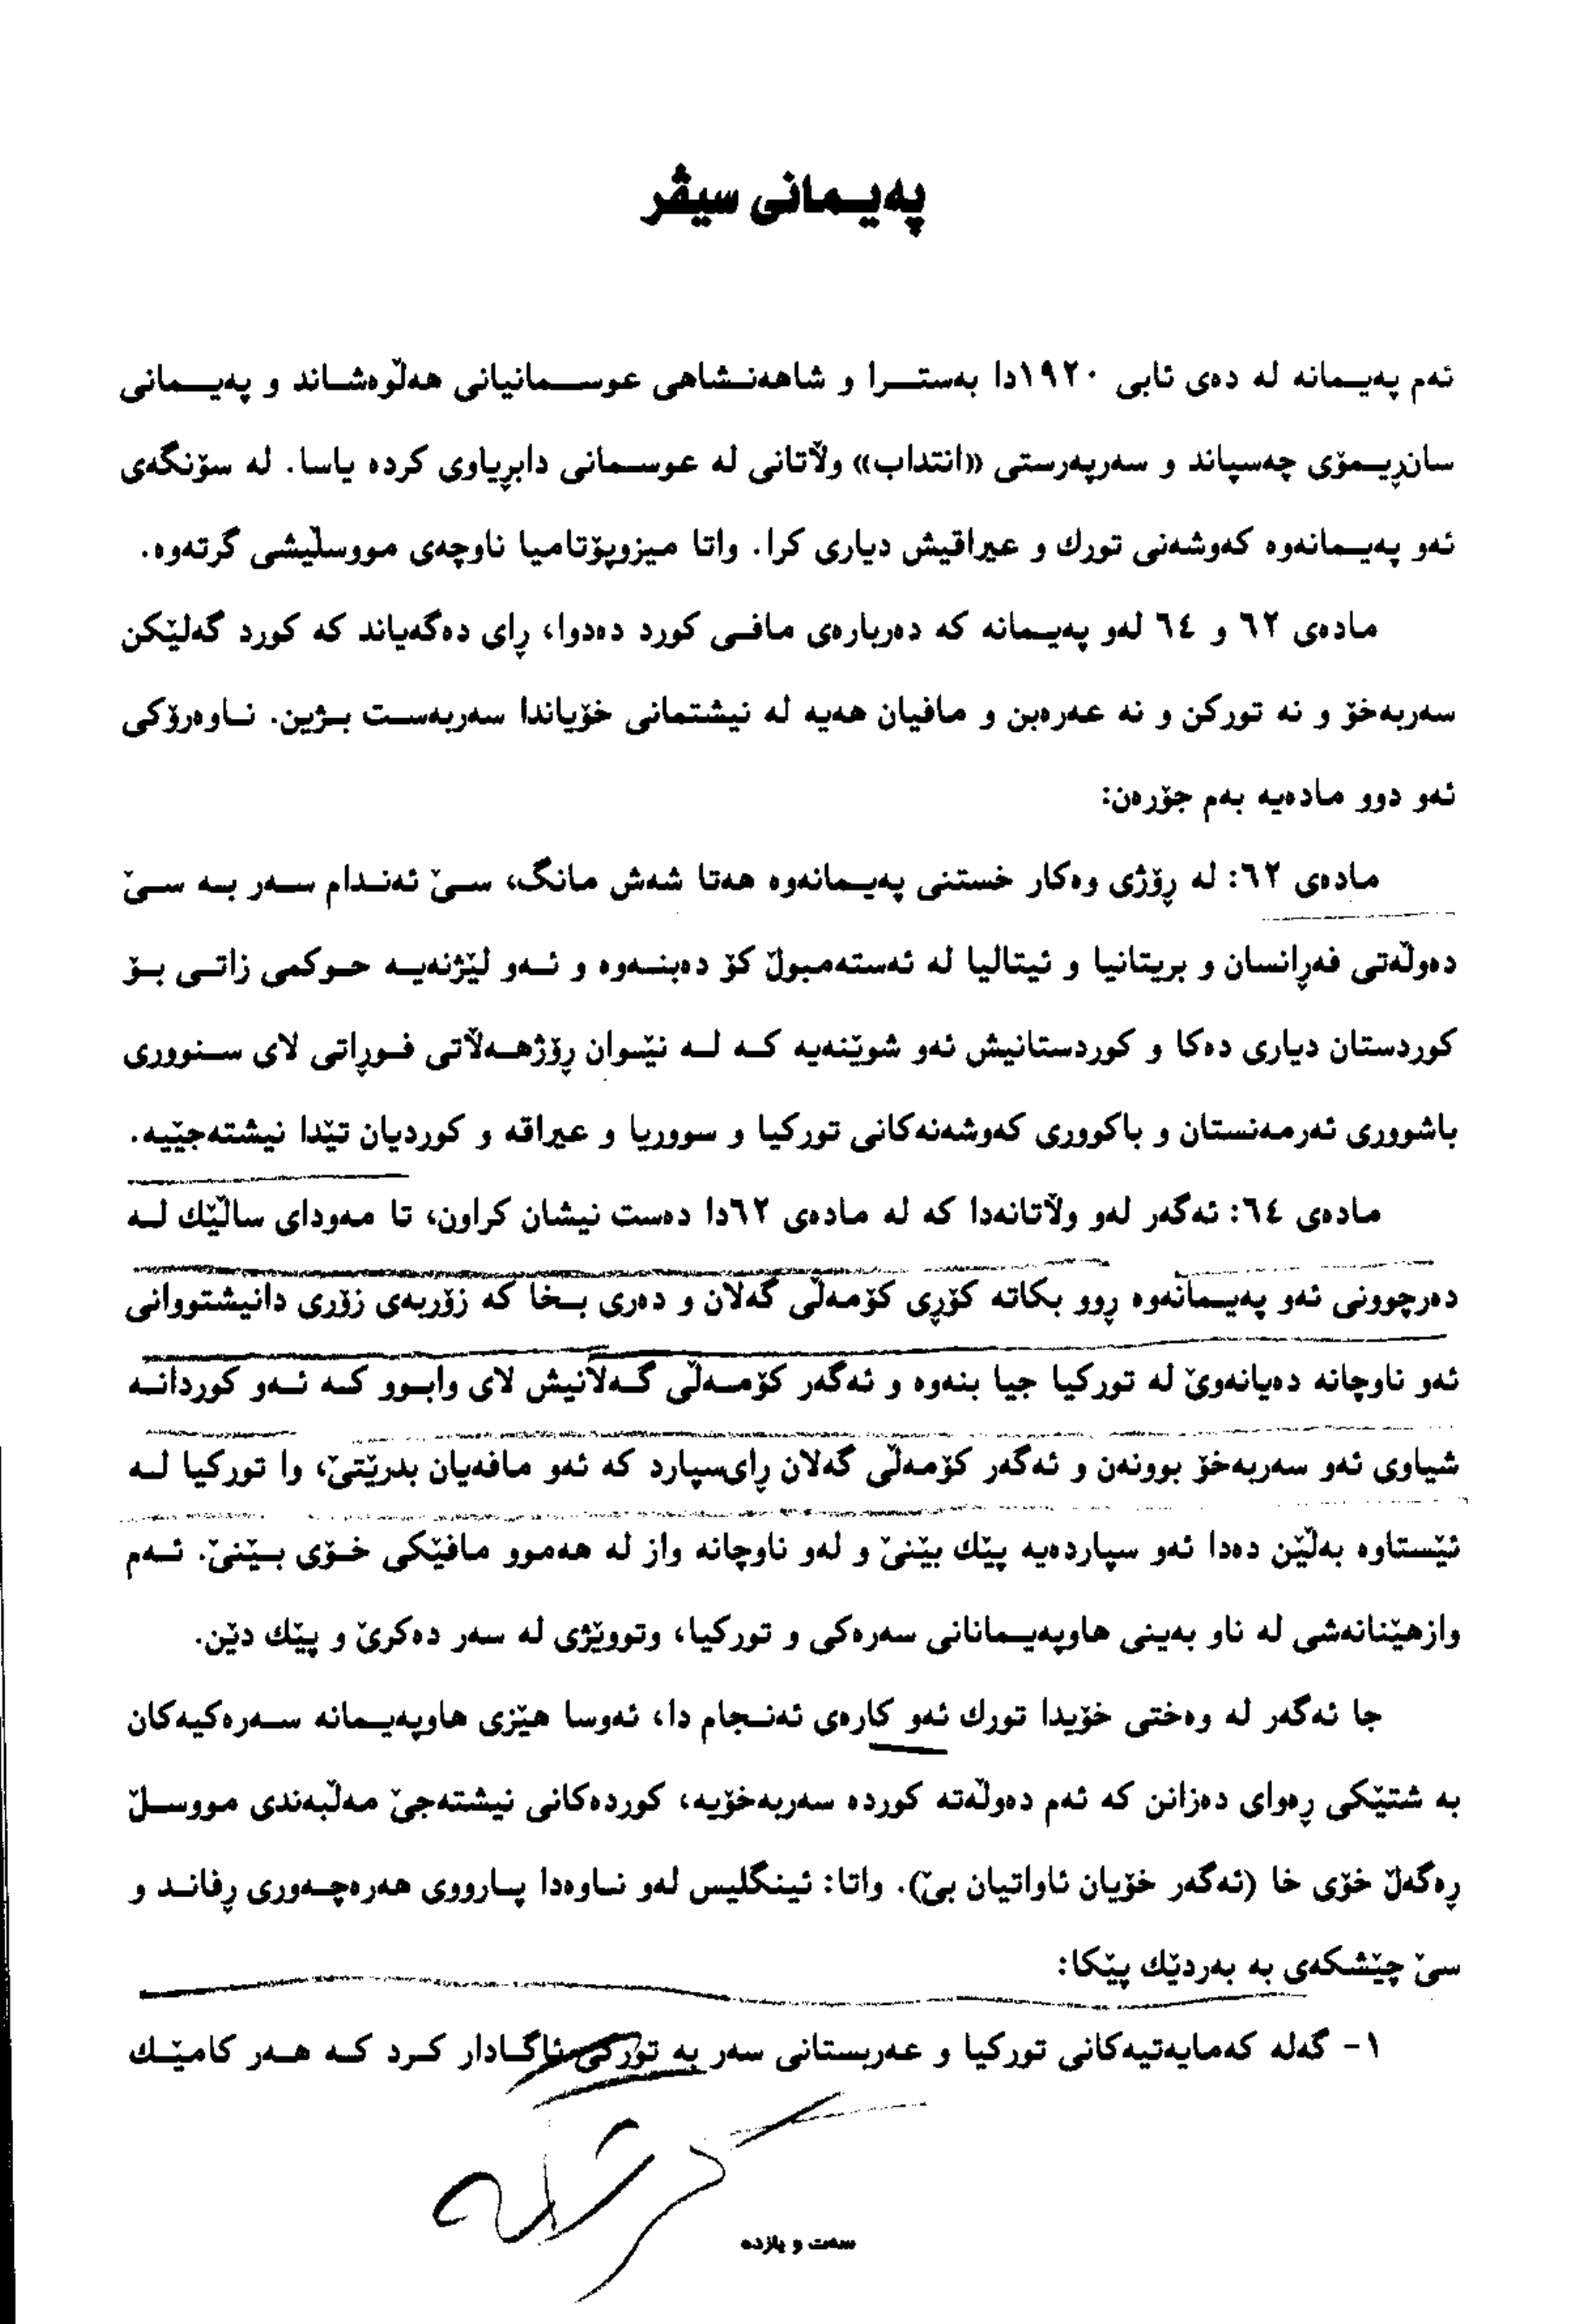 پەیمانی سیڤر
ئەم پەیمانە لە دەی ئابی ١٩٢٠دا بەسترا و شاهەنشاهی عوسمانیانی هەڵوەشاند و پەیمانی
سانڕیمۆی چەسپاند و سەرپەرستی «انتداب» وڵاتانی لە عوسمانی دابڕیاوی کردە یاسا. لە سۆنگەی
ئەو پەیمانەوە کەوشەنی تورك و عیراقیش دیاری کرا. واتا میزوپۆتامیا ناوچەی مووسڵیشی گرتەوە.
مادەی ٦٢ و ٦٤ لەو پەیمانە کە دەربارەی مافی کورد دەدوا، ڕای دەگەیاند کە کورد گەلێکن
سەربەخۆ و نە تورکن و نە عەرەبن و مافیان هەیە لە نیشتمانی خۆیاندا سەربەست بژین. ناوەرۆکی
ئەو دوو مادەیە بەم جۆرەن:
مادەی ٦٢: لە ڕۆژی وەکار خستنی پەیمانەوە هەتا شەش مانگ، سێ ئەندام سەر بە سێ
دەوڵەتی فەڕانسان و بریتانیا و ئیتالیا لە ئەستەمبوڵ کۆ دەبنەوە و ئەو لێژنەیە حوکمی زاتی بۆ
کوردستان دیاری دەکا و کوردستانیش ئەو شوێنەیە کە لە نێوان ڕۆژهەڵاتی فوڕاتی لای سنووری
باشووری ئەرمەنستان و باکووری کەوشەنەکانی تورکیا و سووریا و عیراقە و کوردیان تێدا نیشتەجێیە.
مادەی ٦٤: ئەگەر لەو وڵاتانەدا کە لە مادەی ٦٢دا دەست نیشان کراون، تا مەودای ساڵێك لە
دەرچوونی ئەو پەیمانەوە ڕوو بکاتە کۆڕی کۆمەڵی گەلان و دەری بخا کە زۆربەی زۆری دانیشتووانی
ئەو ناوچانە دەیانەوێ لە تورکیا جیا بنەوە و ئەگەر کۆمەڵی گەلانیش لای وابوو کە ئەو کوردانە
شیاوی ئەو سەربەخۆ بوونەن و ئەگەر کۆمەڵی گەلان ڕای‌سپارد کە ئەو مافەیان بدرێتێ، وا تورکیا لە
ئێستاوە بەڵێن دەدا ئەو سپاردەیە پێك بێنێ و لەو ناوچانە واز لە هەموو مافێکی خۆی بێنێ. ئەم
وازهێنانەشی لە ناو بەینی هاوپەیمانانی سەرەکی و تورکیا، وتووێژی لە سەر دەکرێ و پێك دێن.
جا ئەگەر لە وەختی خۆیدا تورك ئەو کارەی ئەنجام دا، ئەوسا هێزی هاوپەیمانە سەرەکیەکان
بە شتێکی ڕەوای دەزانن کە ئەم دەوڵەتە کوردە سەربەخۆیە، کوردەکانی نیشتەجێ مەڵبەندی مووسڵ
ڕەگەڵ خۆی خا (ئەگەر خۆیان ئاواتیان بێ). واتا: ئینگلیس لەو ناوەدا پارووی هەرەچەوری ڕفاند و
سێ چێشکەی بە بەردێك پێکا:
١- گەلە کەمایەتیەکانی تورکیا و عەربستانی سەر بە تورکی ئاگادار کرد کە هەر کامێك
سەت و یازدە